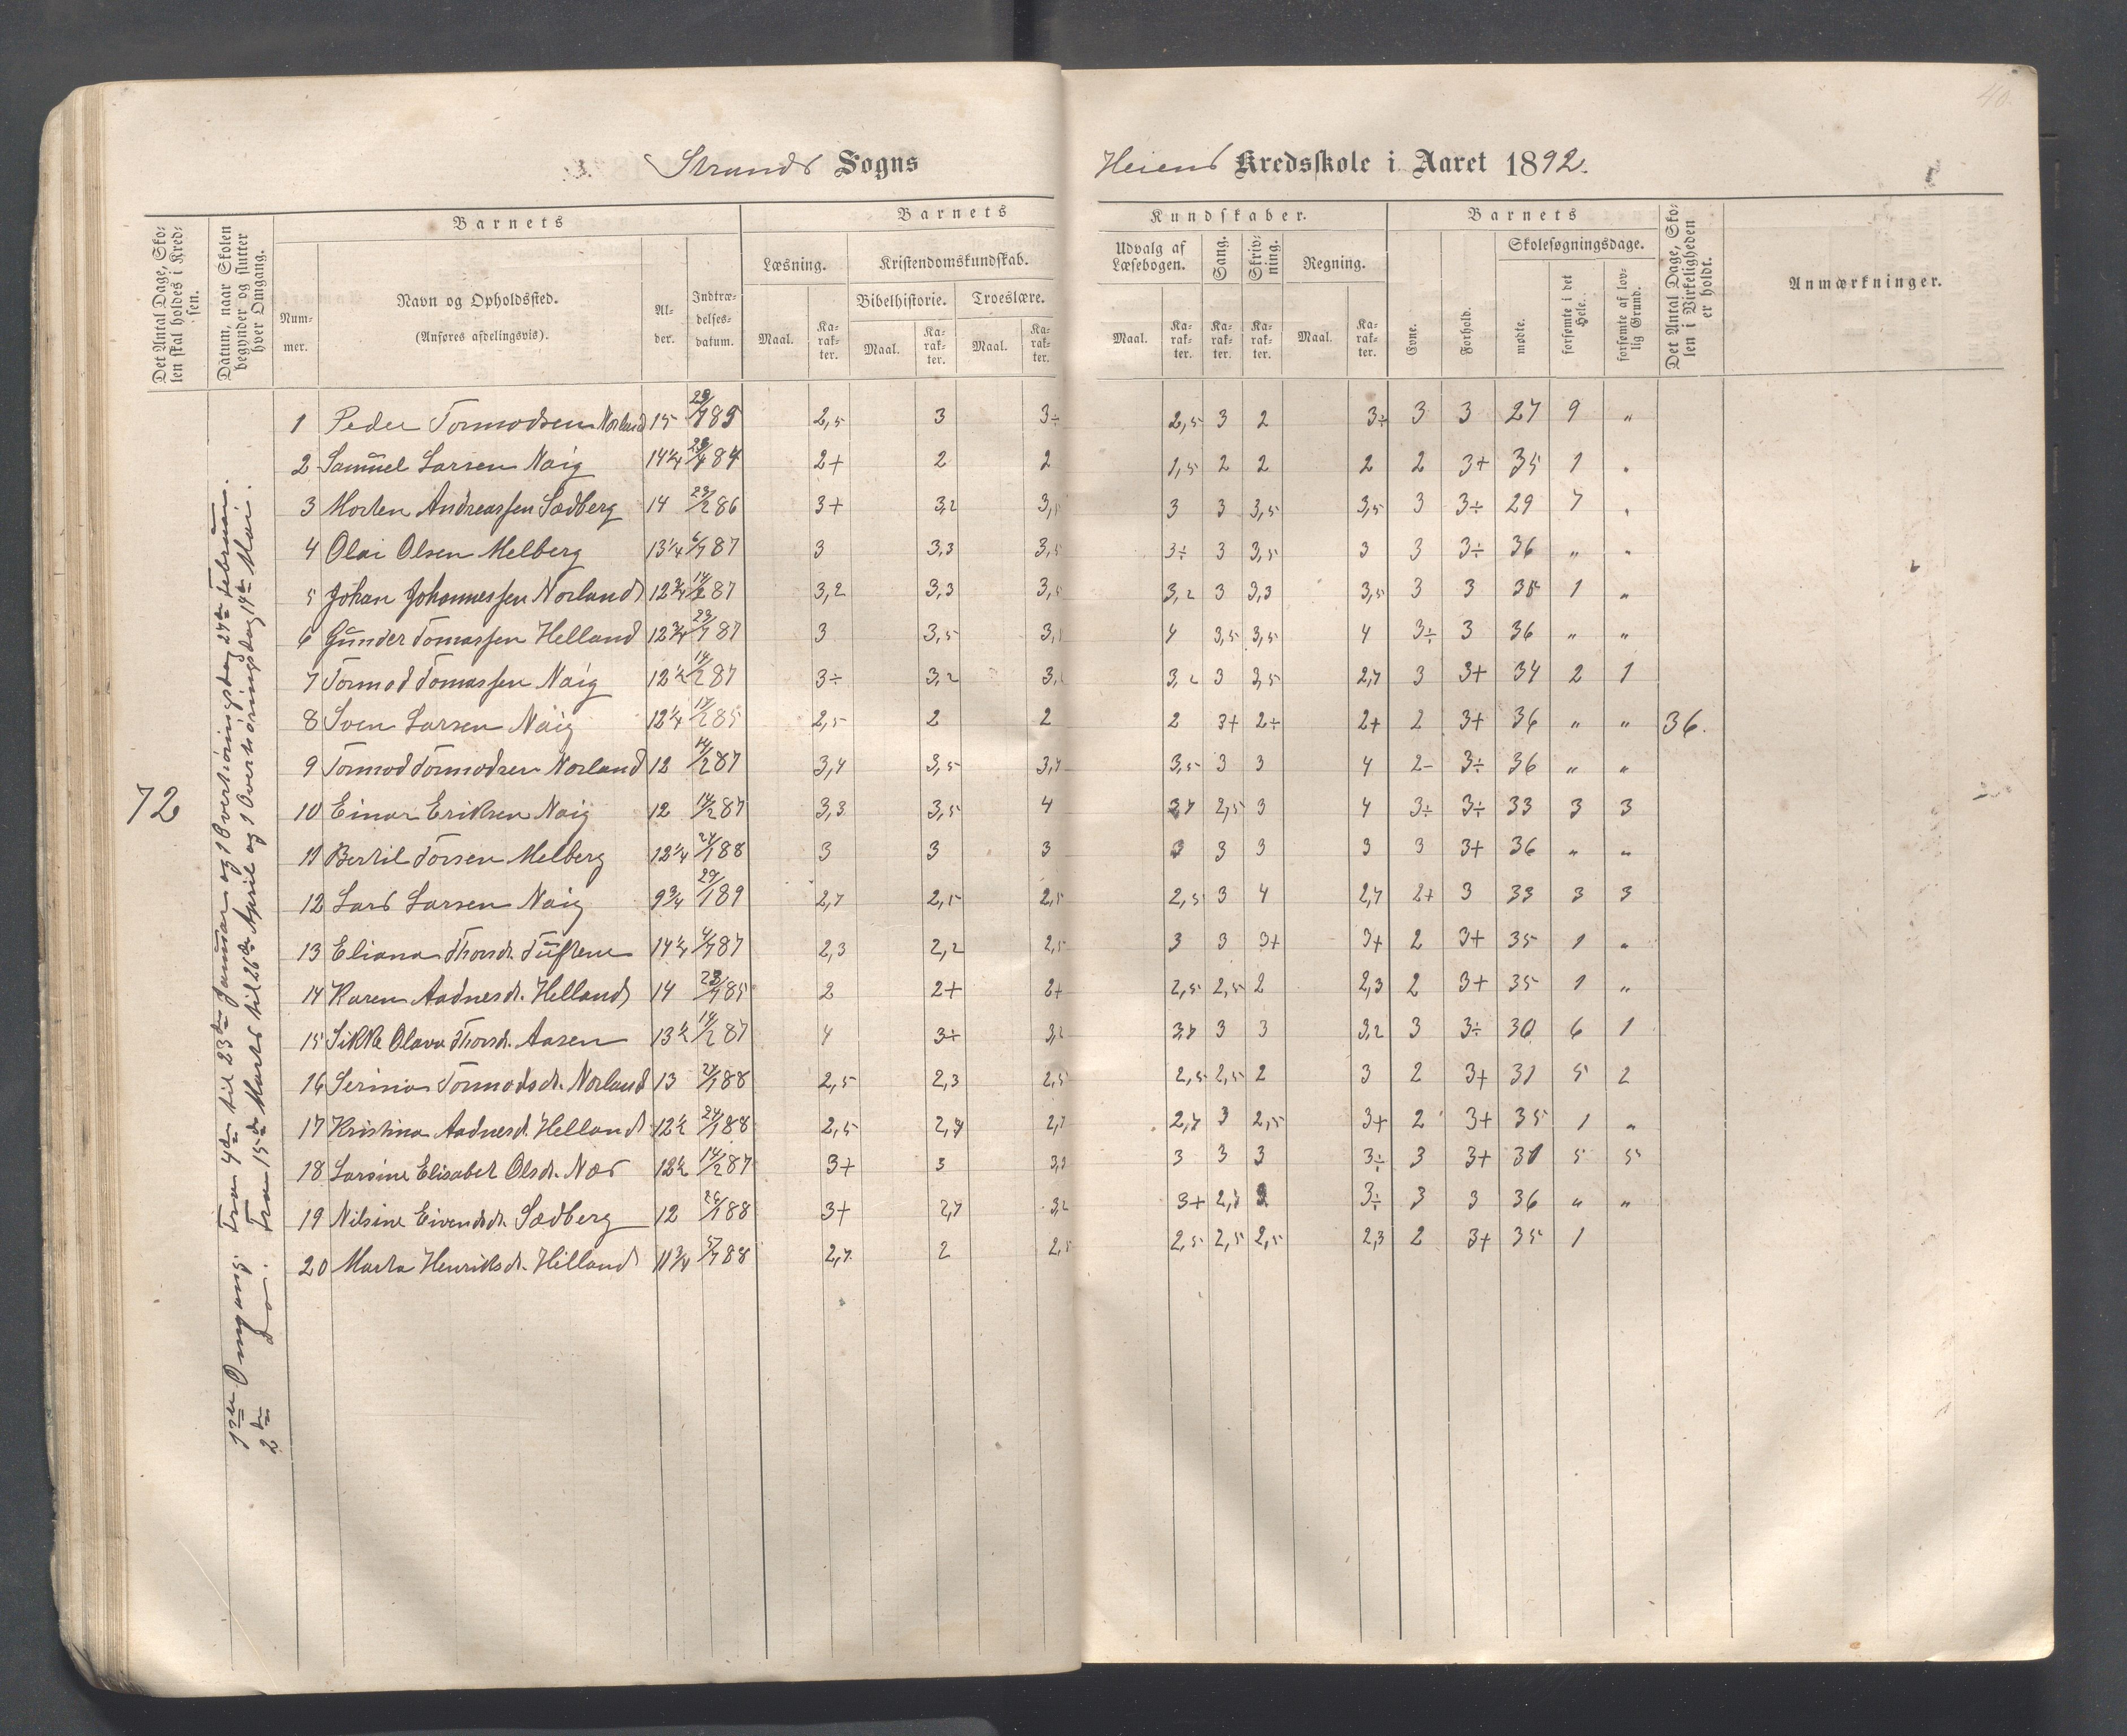 Strands Sogns
Heiens Kredsskole i Aaret 1892.
Det Antal Dage, Skolen skal holdes i Kredsen.
Datum, naar Skolen begynder og slutter hver Omgang.
Barnets
Nummer.
Navn og Opholdssted.
(Anføres afdelingsvis).
Alder.
Indtrædelsesdatum.
Barnets
Læsning.
Kristendomskundskab.
Bibelhistorie. Troeslære.
Maal. Karakter. Maal. Karakter. Maal. Karakter.
Kundskaber.
Udvalg af Læsebogen.
Sang.
Skrivning.
Regning.
Maal. Karakter. Karakter. Karakter. Maal. Karakter.
Barnets
Evne.
Forhold.
Skolesøgningsdage.
mødte.
forsømte i det Hele.
forsømte af lovlig Grund.
Det Antal Dage, Skolen i Virkeligheden er holdt.
Anmærkninger.
72
1ste Omgang: Fra 4de til 23de Januar og 1 Overhøringsdag 24de Februar.
2den do. Fra 15de Marts til 26de April og 1 Overhøringsdag 14de Mai.
1 Peder Tormodsen Norland 15 29/1 85 2,5 3 3÷ 2,5 3 2 3÷ 3 3 27 9 „
2 Samuel Larsen Naig 14 1/4 84 2+ 2 2 1,5 2 2 2 2 3+ 35 1 „
3 Morten Andreassen Sædberg 14 23/2 86 3+ 3,2 3 3 3,5 3,5 3 3÷ 29 7 „
4 Olai Olsen Melberg 13 1/4 6/1 87 3 3,3 3,5 3÷ 3 3,5 3 3 3÷ 36 „ „
5 Johan Johannessen Norland 12 3/4 14/2 87 3,2 3,3 3,5 3,2 3 3,3 3,5 3 3 35 1 „
6 Gunder Tomassen Helland 12 3/4 23/1 87 3 3,5 4 3,5 3,5 4 3÷ 3 36 „ „
7 Tormod Tomassen Naig 12 1/2 14/2 87 3÷ 3,2 3,2 3 3,5 2,7 3 3+ 34 2 1
8 Sven Larsen Naig 12 1/4 17/2 85 2,5 2 2 2 3+ 2÷ 2+ 2 3+ 36 „ „ 36.
9 Tormod Tormodsen Norland 12 14/2 87 3,4 3,5 3,4 3,5 3 3 4 2- 3÷ 36 „ „
10 Einar Eriksen Naig 12 14/2 87 3,3 3,5 4 3,7 2,5 3 4 3÷ 3÷ 33 3 3
11 Bertil Torsen Melberg 12 1/4 24/1 88 3 3 3 3 3 3 3 3 3+ 36 „ „
12 Lars Larsen Naig 9 3/4 29/1 89 2,7 2,5 2,5 2,5 3 4 2,7 2+ 3 33 3 3
13 Eliana Thorsd. 14 1/4 4/1 87 2,3 2,2 2,5 3 3 3+ 3+ 2 3+ 35 1 „
14 Karen Aadnesd. Helland 14 23/1 85 2 2+ 2+ 2,5 2,5 2 2,3 2 3+ 35 1 „
15 Sikke Olava Thorsd. Aasen 13 1/2 14/2 87 4 3÷ 3,2 3,7 3 3 3,2 3 3÷ 30 6 1
16 Serina Tormodsd. Norland 13 21/1 88 2,5 2,3 2,5 2,5 2,5 2 3 2 3+ 31 5 2
17 Kristina Aadnesd. Helland 12 1/2 24/1 88 2,5 2,7 2,7 2,7 3 2,5 3+ 2 3+ 35 1 „
18 Larsine Elisabet Olsdr. Næs 12 1/2 14/2 87 3+ 3 3,3 3 3 3 3÷ 3 3+ 31 5 5
19 Nilsine Eivendsdr. Sædberg 12 26/1 88 3+ 2,7 3,2 3+ 2,7 3 3÷ 3 3 36 „ „
20 Marta Henriksdr. Helland 11 3/4 88 2,7 2 2,5 2,5 2,5 2,5 2,3 2 3+ 35 1